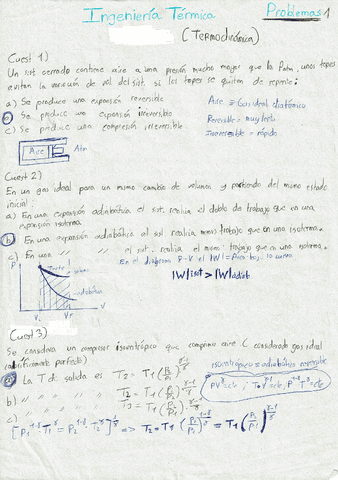 Ingeniería Térmica
Problemas 1
(Termodinámica)
Cuest 1)
Un sist cerrado contiene aire a una presión mucho mayor que la Patm, unos topes
evitan la variación de vol del sist. si los topes se quitan de repente:
a) Se produce una expansión reversible
b) Se produce una expansión irreversible
c) Se produce una compresión irreversible
Aire ≡ Gas ideal diatómico
Reversible = muy lento
Irreversible = rápido
Aire
Atm
Cuest 2)
En un gas ideal para un mismo cambio de volumen y partiendo del mismo estado
inicial:
a) En una expansión adiabática el sist. realiza el doble de trabajo que en una
expansión isoterma.
b) En una expansión adiabática el sist realiza menos trabajo que en una isoterma.
c) En una " " el sist. realiza el mismo trabajo que en una isoterma.
En el diagrama P-V el |W| = Área bajo la curva
|W|isot > |W|adiab
P
isoterma
adiabática
V
Cuest 3)
Se considera un compresor isoentrópico que comprime aire (considerado gas ideal
calóricamente perfecto)
isoentrópico = adiabático reversible
a) La T de salida es T₂ = T₁
b) " " " "
c) " " " "